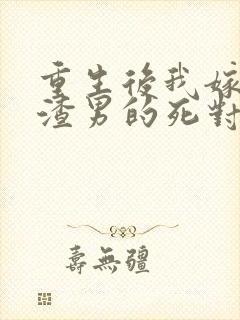 重生後我嫁
渣男的死對
壽無疆